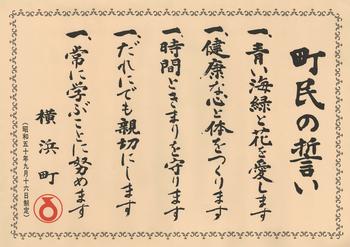 町民の誓い
一、青い海緑と花を愛します
一、健康な心と体をつくります
一、時間ときまりを守ります
一、だれにでも親切にします
一、常に学ぶことに努めます
横浜町
(昭和五十年九月十六日制定)